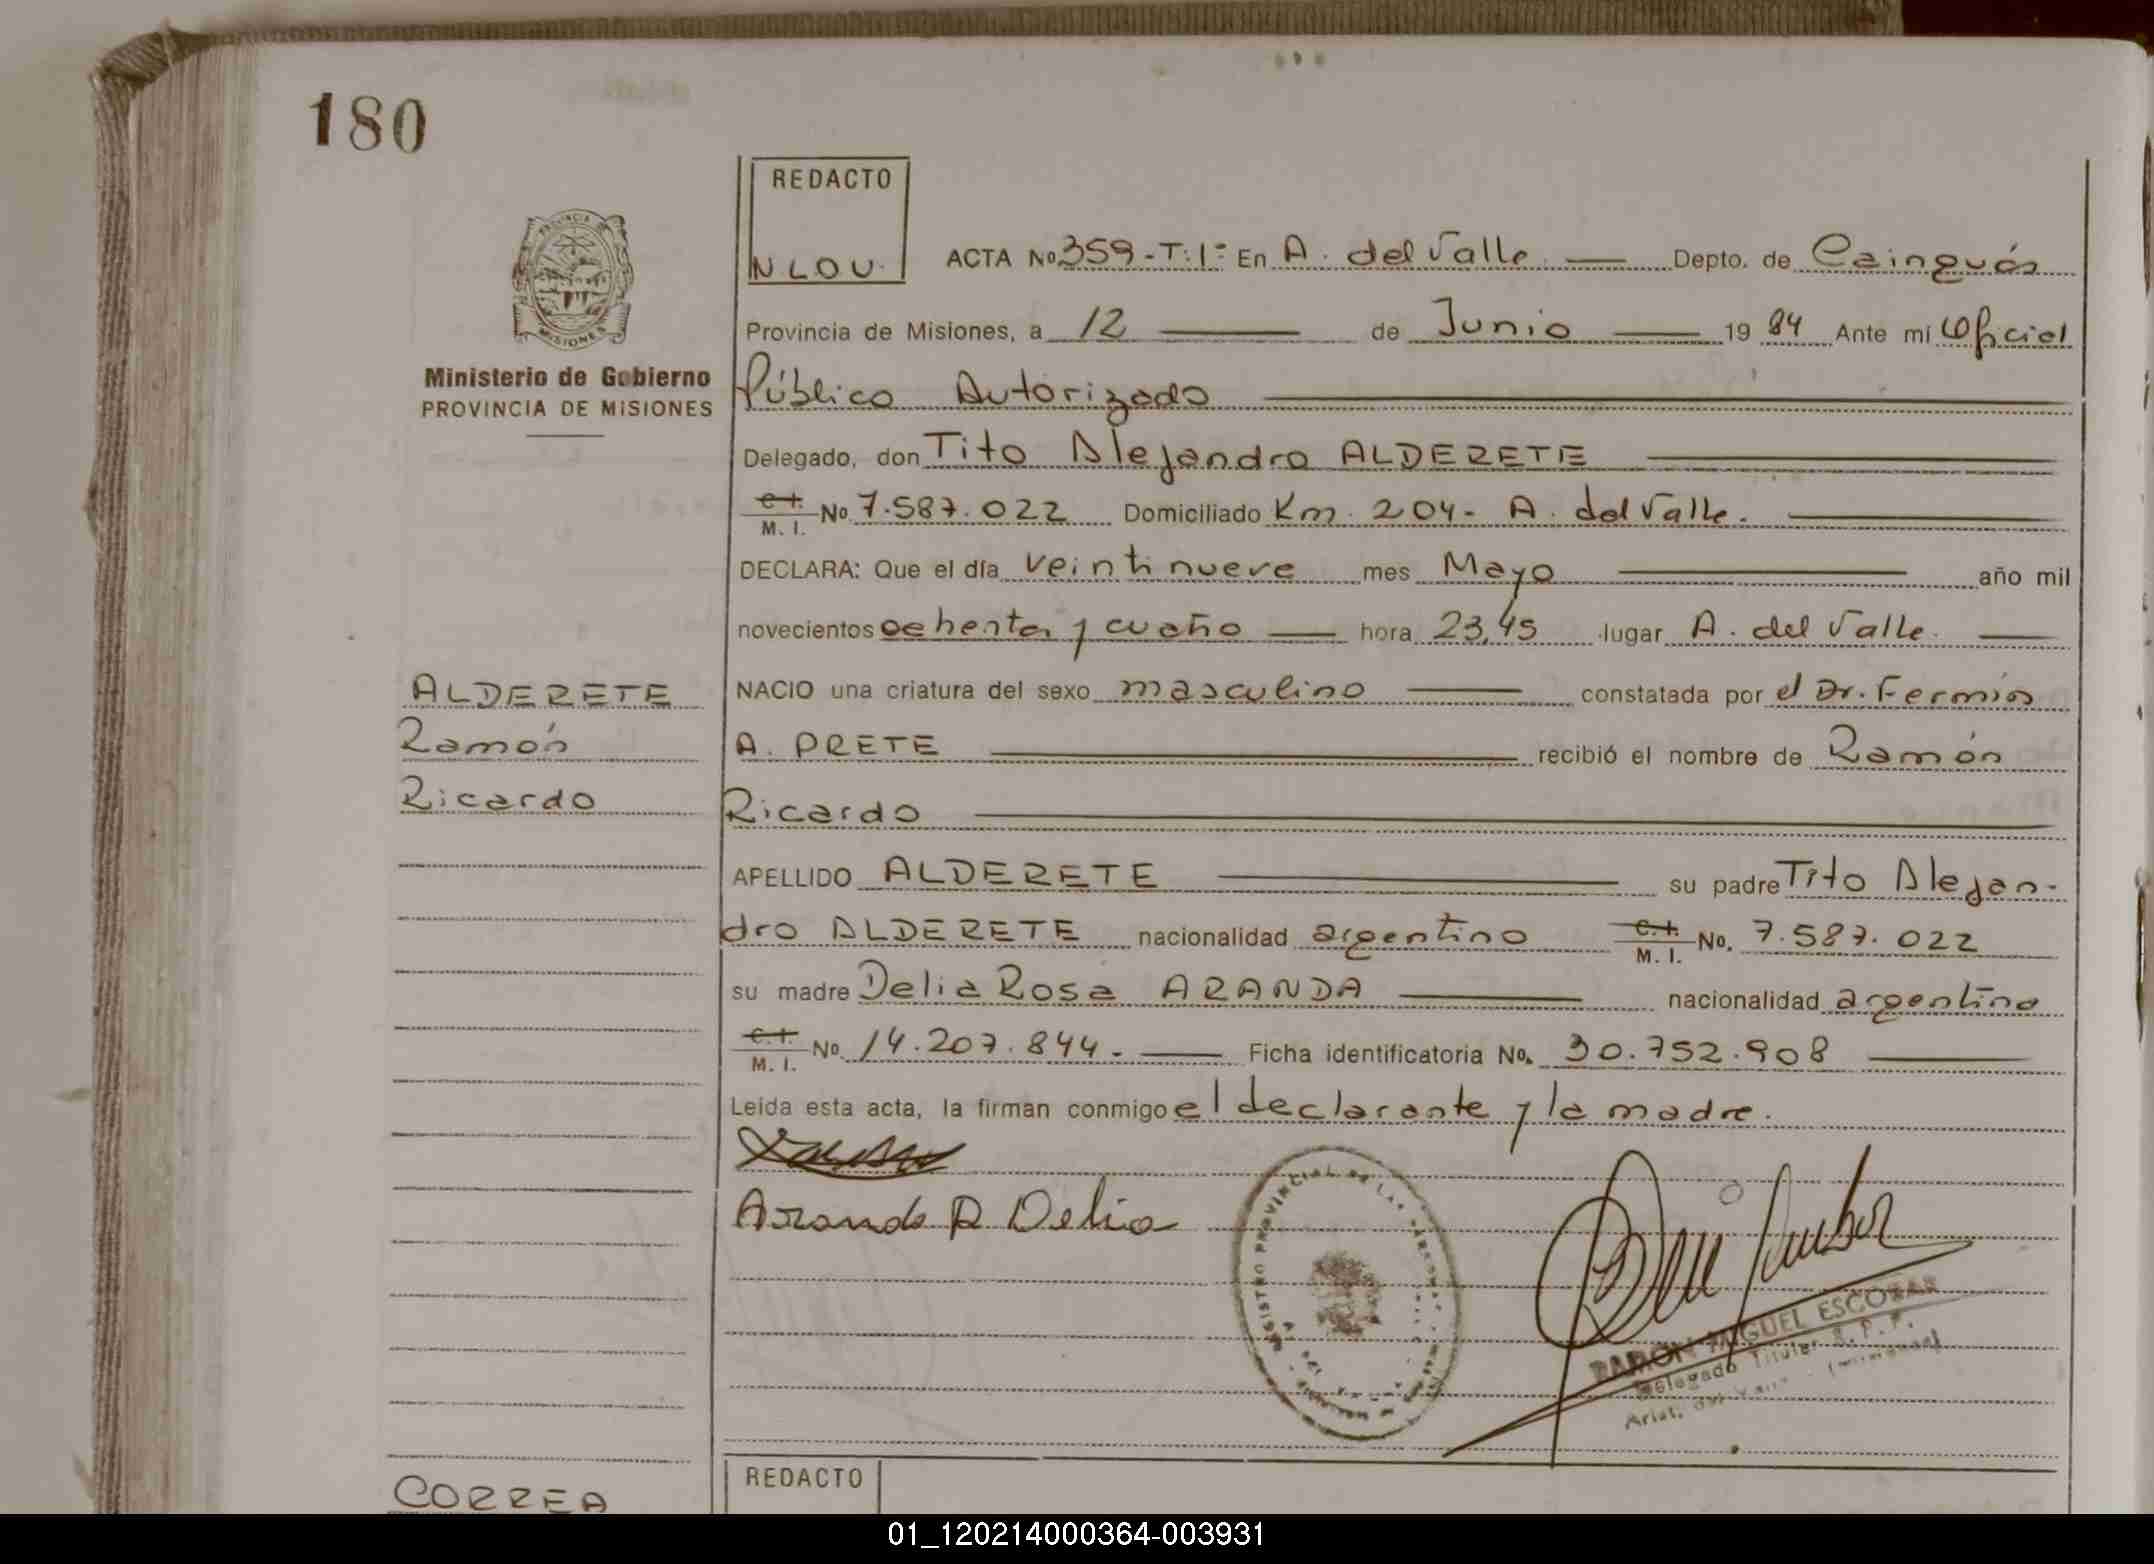 180
REDACTO
NLOV.
ACTA No 359-T:1º En A. del Valle Depto. de Cainguás
Provincia de Misiones, a 12 de Junio 19 84 Ante mi Oficial
Ministerio de Gobierno
PROVINCIA DE MISIONES
Público Autorizado
Delegado, don Tito Alejandro ALDERETE
C.I.
M. I. No 7.587.022 Domiciliado Km. 204- A. del Valle.
DECLARA: Que el día veintinueve mes Mayo año mil
novecientos ochenta y cuatro hora 23,45 lugar A. del Valle.
ALDERETE
Ramón
Ricardo
NACIO una criatura del sexo masculino constatada por el Dr. Fermín
A. PRETE recibió el nombre de Ramón
Ricardo
APELLIDO ALDERETE su padre Tito Alejan-
dro ALDERETE nacionalidad argentino C.I.
M. I. No. 7.587.022
su madre Delia Rosa ARANDA nacionalidad argentina
C.I.
M. I. No. 14.207.844.- Ficha identificatoria No. 30.752.908
Leida esta acta, la firman conmigo el declarante y la madre.
Aranda R Delia
REGISTRO PROVINCIAL DE LAS
RAMON MIGUEL ESCOBAR
Delegado Titular R. P. P.
Arist. del Valle - (Misiones)
CORREA
REDACTO
01_120214000364-003931